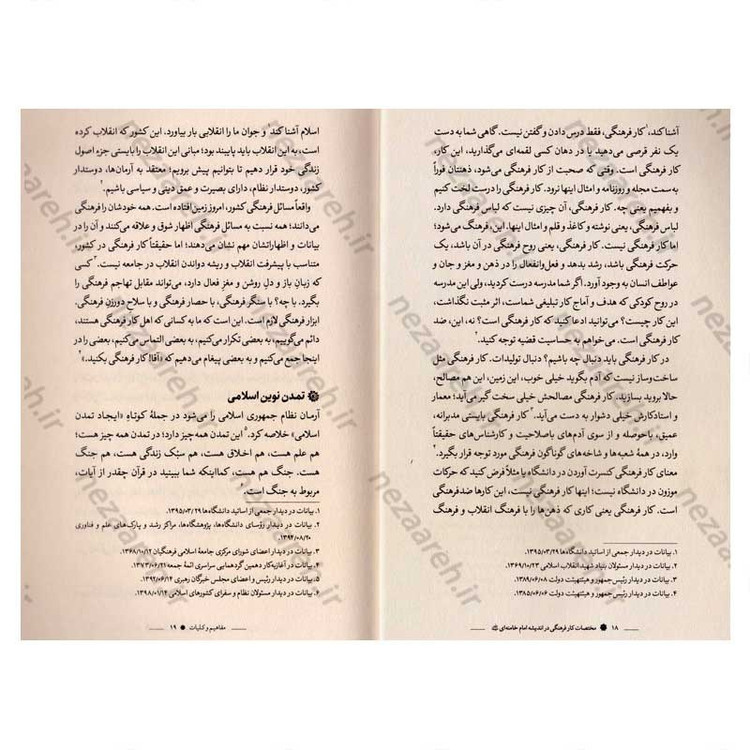 آشنا کند،¹ کار فرهنگی، فقط درس دادن و گفتن نیست. گاهی شما به دست
یک نفر قرصی می‌دهید یا در دهان کسی لقمه‌ای می‌گذارید، این کار،
کار فرهنگی است. وقتی که صحبت از کار فرهنگی می‌شود، ذهنتان فوراً
به سمت مجله و روزنامه و امثال اینها نرود. کار فرهنگی را درست لخت کنیم
و بفهمیم یعنی چه. کار فرهنگی، آن چیزی نیست که لباس فرهنگی دارد.
لباس فرهنگی، یعنی نوشته و کاغذ و قلم و امثال اینها. این، فرهنگ می‌شود؛
اما کار فرهنگی نیست. کار فرهنگی، یعنی روح فرهنگی در آن باشد، یک
حرکت فرهنگی باشد، رشد بدهد و فعل‌وانفعال را در ذهن و مغز و جان و
عواطف انسان به وجود آورد. اگر شما مدرسه درست کردید، ولی این مدرسه
در روح کودکی که هدف و آماج کار تبلیغی شماست، اثر مثبت نگذاشت،
این کار چیست؟ می‌توانید ادعا کنید که کار فرهنگی است؟ نه، این، ضد
کار فرهنگی است. می‌خواهم به حساسیت قضیه توجه کنید.²
در کار فرهنگی باید دنبال چه باشیم؟ دنبال تولیدات. کار فرهنگی مثل
ساخت‌وساز نیست که آدم بگوید خیلی خوب، این زمین، این هم مصالح،
حالا بروید بسازید. کار فرهنگی مصالحش خیلی سخت گیر می‌آید؛ معمار
و استادکارش خیلی دشوار به دست می‌آید.³ کار فرهنگی بایستی مدبرانه،
عمیق، باحوصله و از سوی آدم‌های باصلاحیت و کارشناس‌های حقیقتاً
وارد، در همۀ شعبه‌ها و شاخه‌های گوناگون فرهنگی مورد توجه قرار بگیرد.⁴
معنای کار فرهنگی کنسرت آوردن در دانشگاه یا مثلاً فرض کنید که حرکات
موزون در دانشگاه نیست؛ اینها کار فرهنگی نیست، این کارها ضدفرهنگی
است. کار فرهنگی یعنی کاری که ذهن‌ها را با فرهنگ انقلاب و فرهنگ
۱. بیانات در دیدار جمعی از اساتید دانشگاه‌ها ۱۳۹۵/۰۳/۲۹.
۲. بیانات در دیدار مسئولان بنیاد شهید انقلاب اسلامی ۱۳۶۹/۱۰/۲۳.
۳. بیانات در دیدار رئیس جمهور و هیئت‌دولت ۱۳۸۹/۰۶/۰۸.
۴. بیانات در دیدار رئیس جمهور و هیئت‌دولت ۱۳۸۵/۰۶/۰۶.
۱۸ مختصات کار فرهنگی در اندیشه امام خامنه‌ای
اسلام آشنا کند¹ و جوان ما را انقلابی بار بیاورد. این کشور که انقلاب کرده
است، به این انقلاب باید پایبند بود؛ مبانی این انقلاب را بایستی جزء اصول
زندگی خود قرار دهیم تا بتوانیم پیش برویم؛ معتقد به آرمان‌ها، دوستدار
کشور، دوستدار نظام، دارای بصیرت و عمق دینی و سیاسی باشیم.²
واقعاً مسائل فرهنگی کشور، امروز زمین افتاده است. همه خودشان را فرهنگی
می‌دانند؛ همه نسبت به مسائل فرهنگی اظهار شوق و علاقه می‌کنند و آن را در
بیانات و اظهاراتشان مهم نشان می‌دهند؛ اما حقیقتاً کار فرهنگی در کشور،
متناسب با پیشرفت انقلاب و ریشه دواندن انقلاب در جامعه نیست.³ کسی
که زبانِ باز و دلِ روشن و مغزِ فعال دارد، می‌تواند مقابل تهاجم فرهنگی را
بگیرد. با چه؟ با سنگر فرهنگی، با حصار فرهنگی و با سلاح دورزنِ فرهنگی.
ابزار فرهنگی لازم است. این است که ما به کسانی که اهل کار فرهنگی هستند،
دائم می‌گوییم، به بعضی تکرار می‌کنیم، به بعضی التماس می‌کنیم، بعضی را در
اینجا جمع می‌کنیم و به بعضی پیغام می‌دهیم که «آقا! کار فرهنگی بکنید.»⁴
تمدن نوین اسلامی
آرمان نظام جمهوری اسلامی را می‌شود در جملۀ کوتاه «ایجاد تمدن
اسلامی» خلاصه کرد.⁵ این تمدن همه چیز دارد؛ در تمدن همه چیز هست؛
هم علم هست، هم اخلاق هست، هم سبک زندگی هست، هم جنگ
هست. جنگ هم هست، کمااینکه شما ببینید در قرآن چقدر از آیات،
مربوط به جنگ است.⁶
۱. بیانات در دیدار جمعی از اساتید دانشگاه‌ها ۱۳۹۵/۰۳/۲۹.
۲. بیانات در دیدار رؤسای دانشگاه‌ها، پژوهشگاه‌ها، مراکز رشد و پارک‌های علم و فناوری
۱۳۹۴/۰۸/۲۰.
۳. بیانات در دیدار اعضای شورای مرکزی جامعۀ اسلامی فرهنگیان ۱۳۶۸/۱۰/۱۲.
۴. بیانات در آغاز به کار دهمین گردهمایی سراسری ائمۀ جمعه ۱۳۷۳/۰۶/۲۱.
۵. بیانات در دیدار رئیس و اعضای مجلس خبرگان رهبری ۱۳۹۲/۰۶/۱۴.
۶. بیانات در دیدار مسئولان نظام و سفرای کشورهای اسلامی ۱۳۹۸/۰۱/۱۴.
مفاهیم و کلیات ۱۹
nezaareh.ir